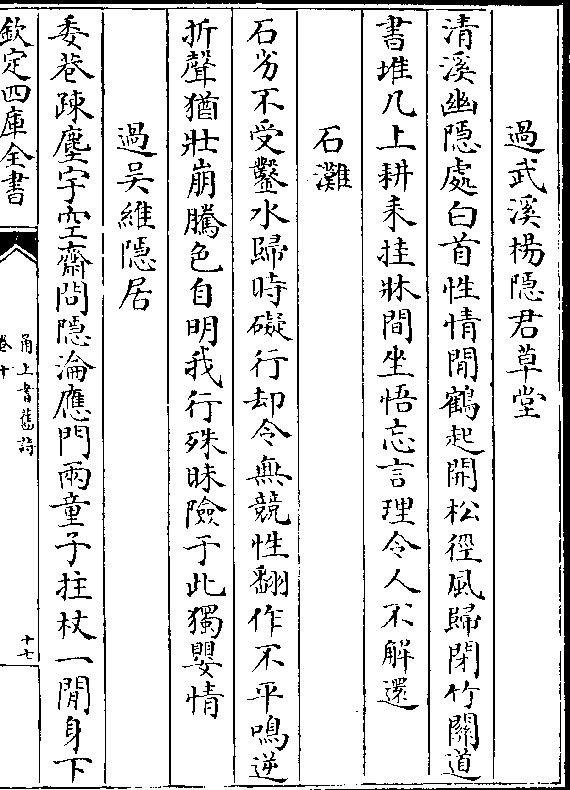 過武溪楊隱君草堂
清溪幽隱處白首性情閒鶴起開松徑風歸閉竹關道
書堆几上耕耒挂牀間坐悟忘言理令人不解還
石灘
石勞不受鑿水歸時礙行却令無競性翻作不平鳴逆
折聲猶壯崩騰色自明我行殊昧險于此獨嬰情
過吳維隱居
委巷疎塵宇空齋問隱淪應門兩童子拄杖一閒身下
欽定四庫全書
甬上耆舊詩
卷十
十七